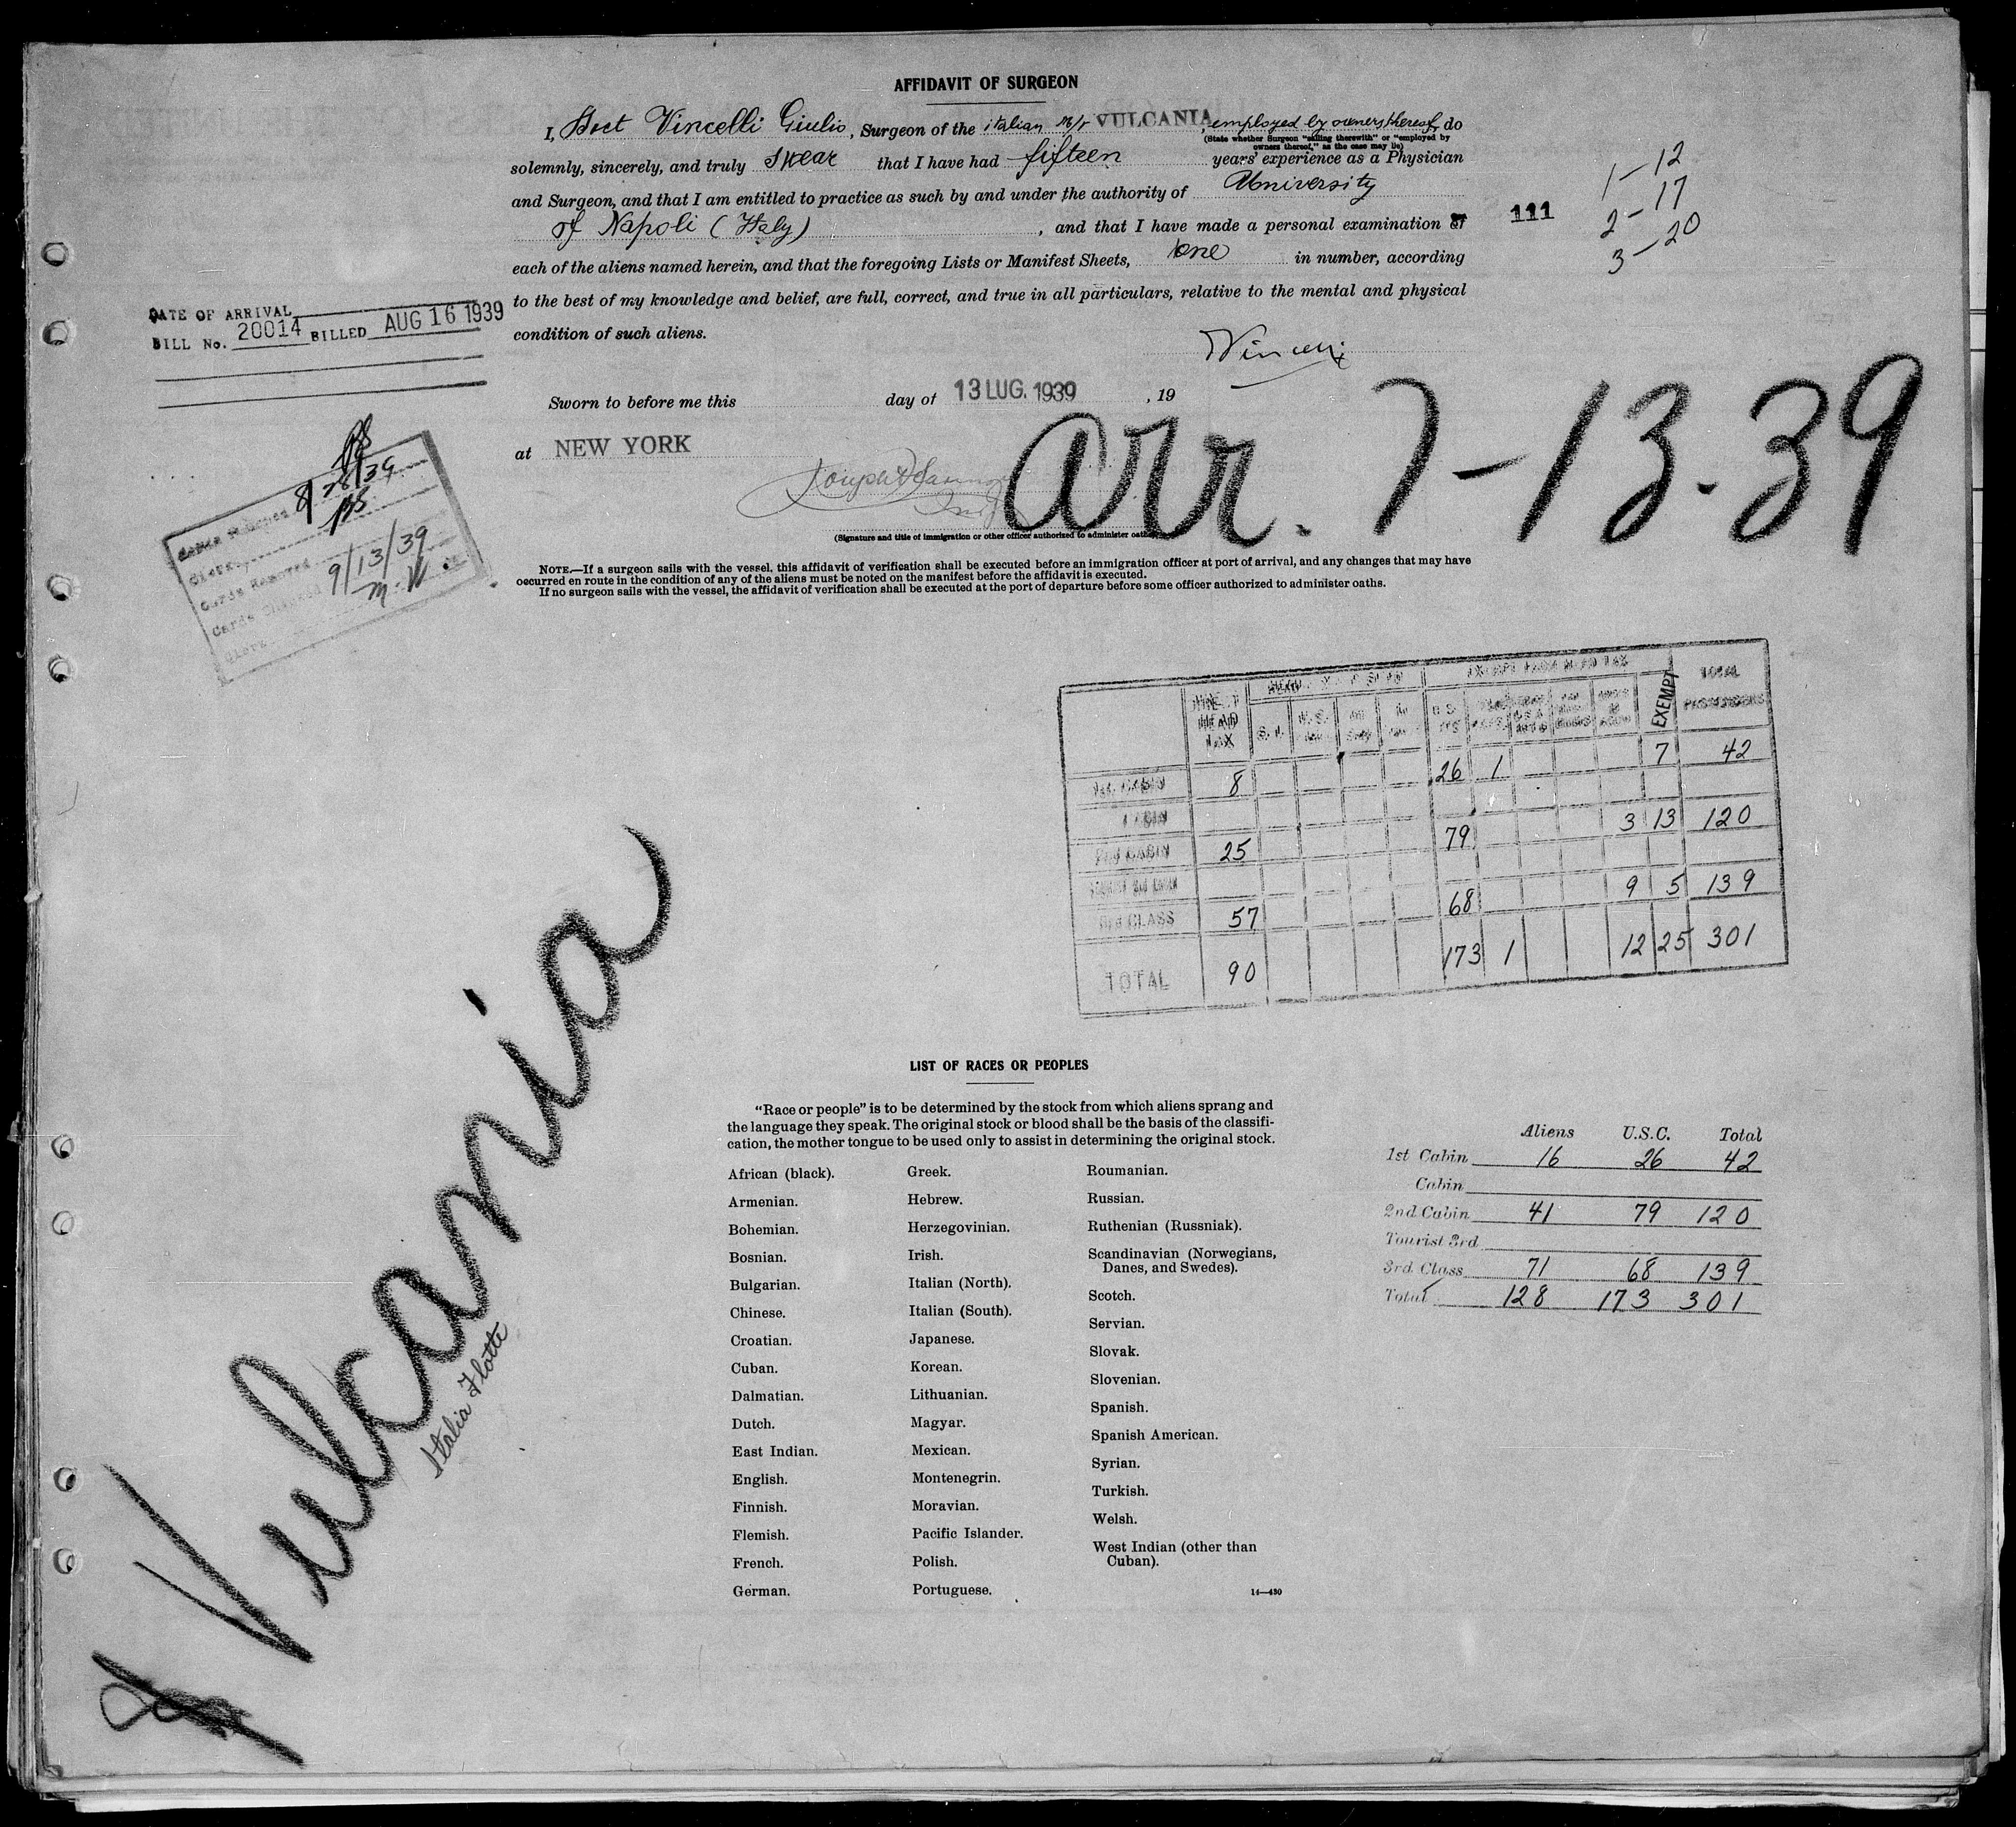 AFFIDAVIT OF SURGEON
I, Doct Vincelli Giulio, Surgeon of the italian M/s VULCANIA, employed by owners thereof, do
(State whether Surgeon "sailing therewith" or "employed by
owners thereof," as the case may be)
solemnly, sincerely, and truly swear that I have had fifteen years' experience as a Physician
and Surgeon, and that I am entitled to practice as such by and under the authority of University
of Napoli (Italy), and that I have made a personal examination of
111
1-12
2-17
3-20
each of the aliens named herein, and that the foregoing Lists or Manifest Sheets, one in number, according
to the best of my knowledge and belief, are full, correct, and true in all particulars, relative to the mental and physical
condition of such aliens.
Vincelli
DATE OF ARRIVAL
BILL No. 20014 BILLED AUG 16 1939
Sworn to before me this day of 13 LUG. 1939, 19
at NEW YORK
arr. 7-13-39
(Signature and title of immigration or other officer authorized to administer oaths)
8/28/39
Cards Removed
9/13/39
M.W.
NOTE.—If a surgeon sails with the vessel, this affidavit of verification shall be executed before an immigration officer at port of arrival, and any changes that may have
occurred en route in the condition of any of the aliens must be noted on the manifest before the affidavit is executed.
If no surgeon sails with the vessel, the affidavit of verification shall be executed at the port of departure before some officer authorized to administer oaths.
HEAD TAX EXEMPT TOTAL PASSENGERS
1st CABIN 8 26 1 7 42
CABIN
2nd CABIN 25 79 3 13 120
3rd CLASS 57 68 9 5 139
TOTAL 90 173 1 12 25 301
Vulcania
Italia Flotte
LIST OF RACES OR PEOPLES
"Race or people" is to be determined by the stock from which aliens sprang and
the language they speak. The original stock or blood shall be the basis of the classifi-
cation, the mother tongue to be used only to assist in determining the original stock.
African (black).
Armenian.
Bohemian.
Bosnian.
Bulgarian.
Chinese.
Croatian.
Cuban.
Dalmatian.
Dutch.
East Indian.
English.
Finnish.
Flemish.
French.
German.
Greek.
Hebrew.
Herzegovinian.
Irish.
Italian (North).
Italian (South).
Japanese.
Korean.
Lithuanian.
Magyar.
Mexican.
Montenegrin.
Moravian.
Pacific Islander.
Polish.
Portuguese.
Roumanian.
Russian.
Ruthenian (Russniak).
Scandinavian (Norwegians,
Danes, and Swedes).
Scotch.
Servian.
Slovak.
Slovenian.
Spanish.
Spanish American.
Syrian.
Turkish.
Welsh.
West Indian (other than
Cuban).
14—430
Aliens U.S.C. Total
1st Cabin 16 26 42
Cabin
2nd Cabin 41 79 120
Tourist 3rd
3rd Class 71 68 139
Total 128 173 301